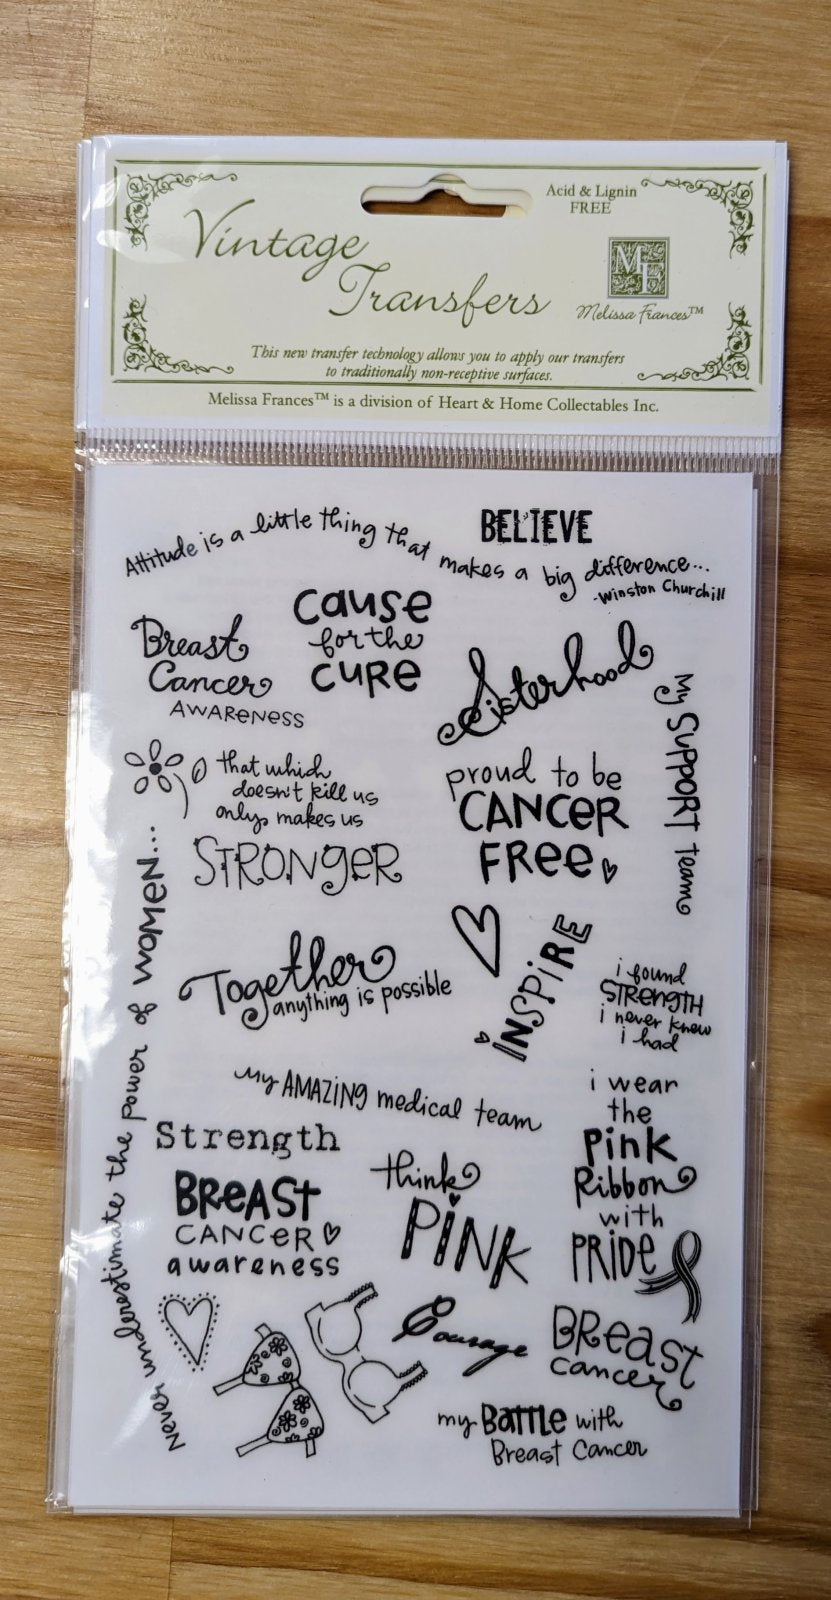 Acid & Lignin
FREE
Vintage
Transfers
ME
Melissa Frances™
This new transfer technology allows you to apply our transfers
to traditionally non-receptive surfaces.
Melissa Frances™ is a division of Heart & Home Collectables Inc.
BELIEVE
Attitude is a little thing that makes a big difference...
-Winston Churchill
Breast
Cancer
AWARENESS
Cause
for the
CURE
Sisterhood
My SUPPORT team
that which
doesn't kill us
only makes us
STRONGER
proud to be
CANCER
FREE
Never underestimate the power of WOMEN...
Together
anything is possible
INSPIRE
i found
STRENGTH
i never knew
i had
my AMAZING medical team
Strength
BREAST
CANCER
awareness
think
PINK
i wear
the
Pink
Ribbon
with
PRIDE
Courage
BREAST
cancer
my BATTLE with
Breast Cancer